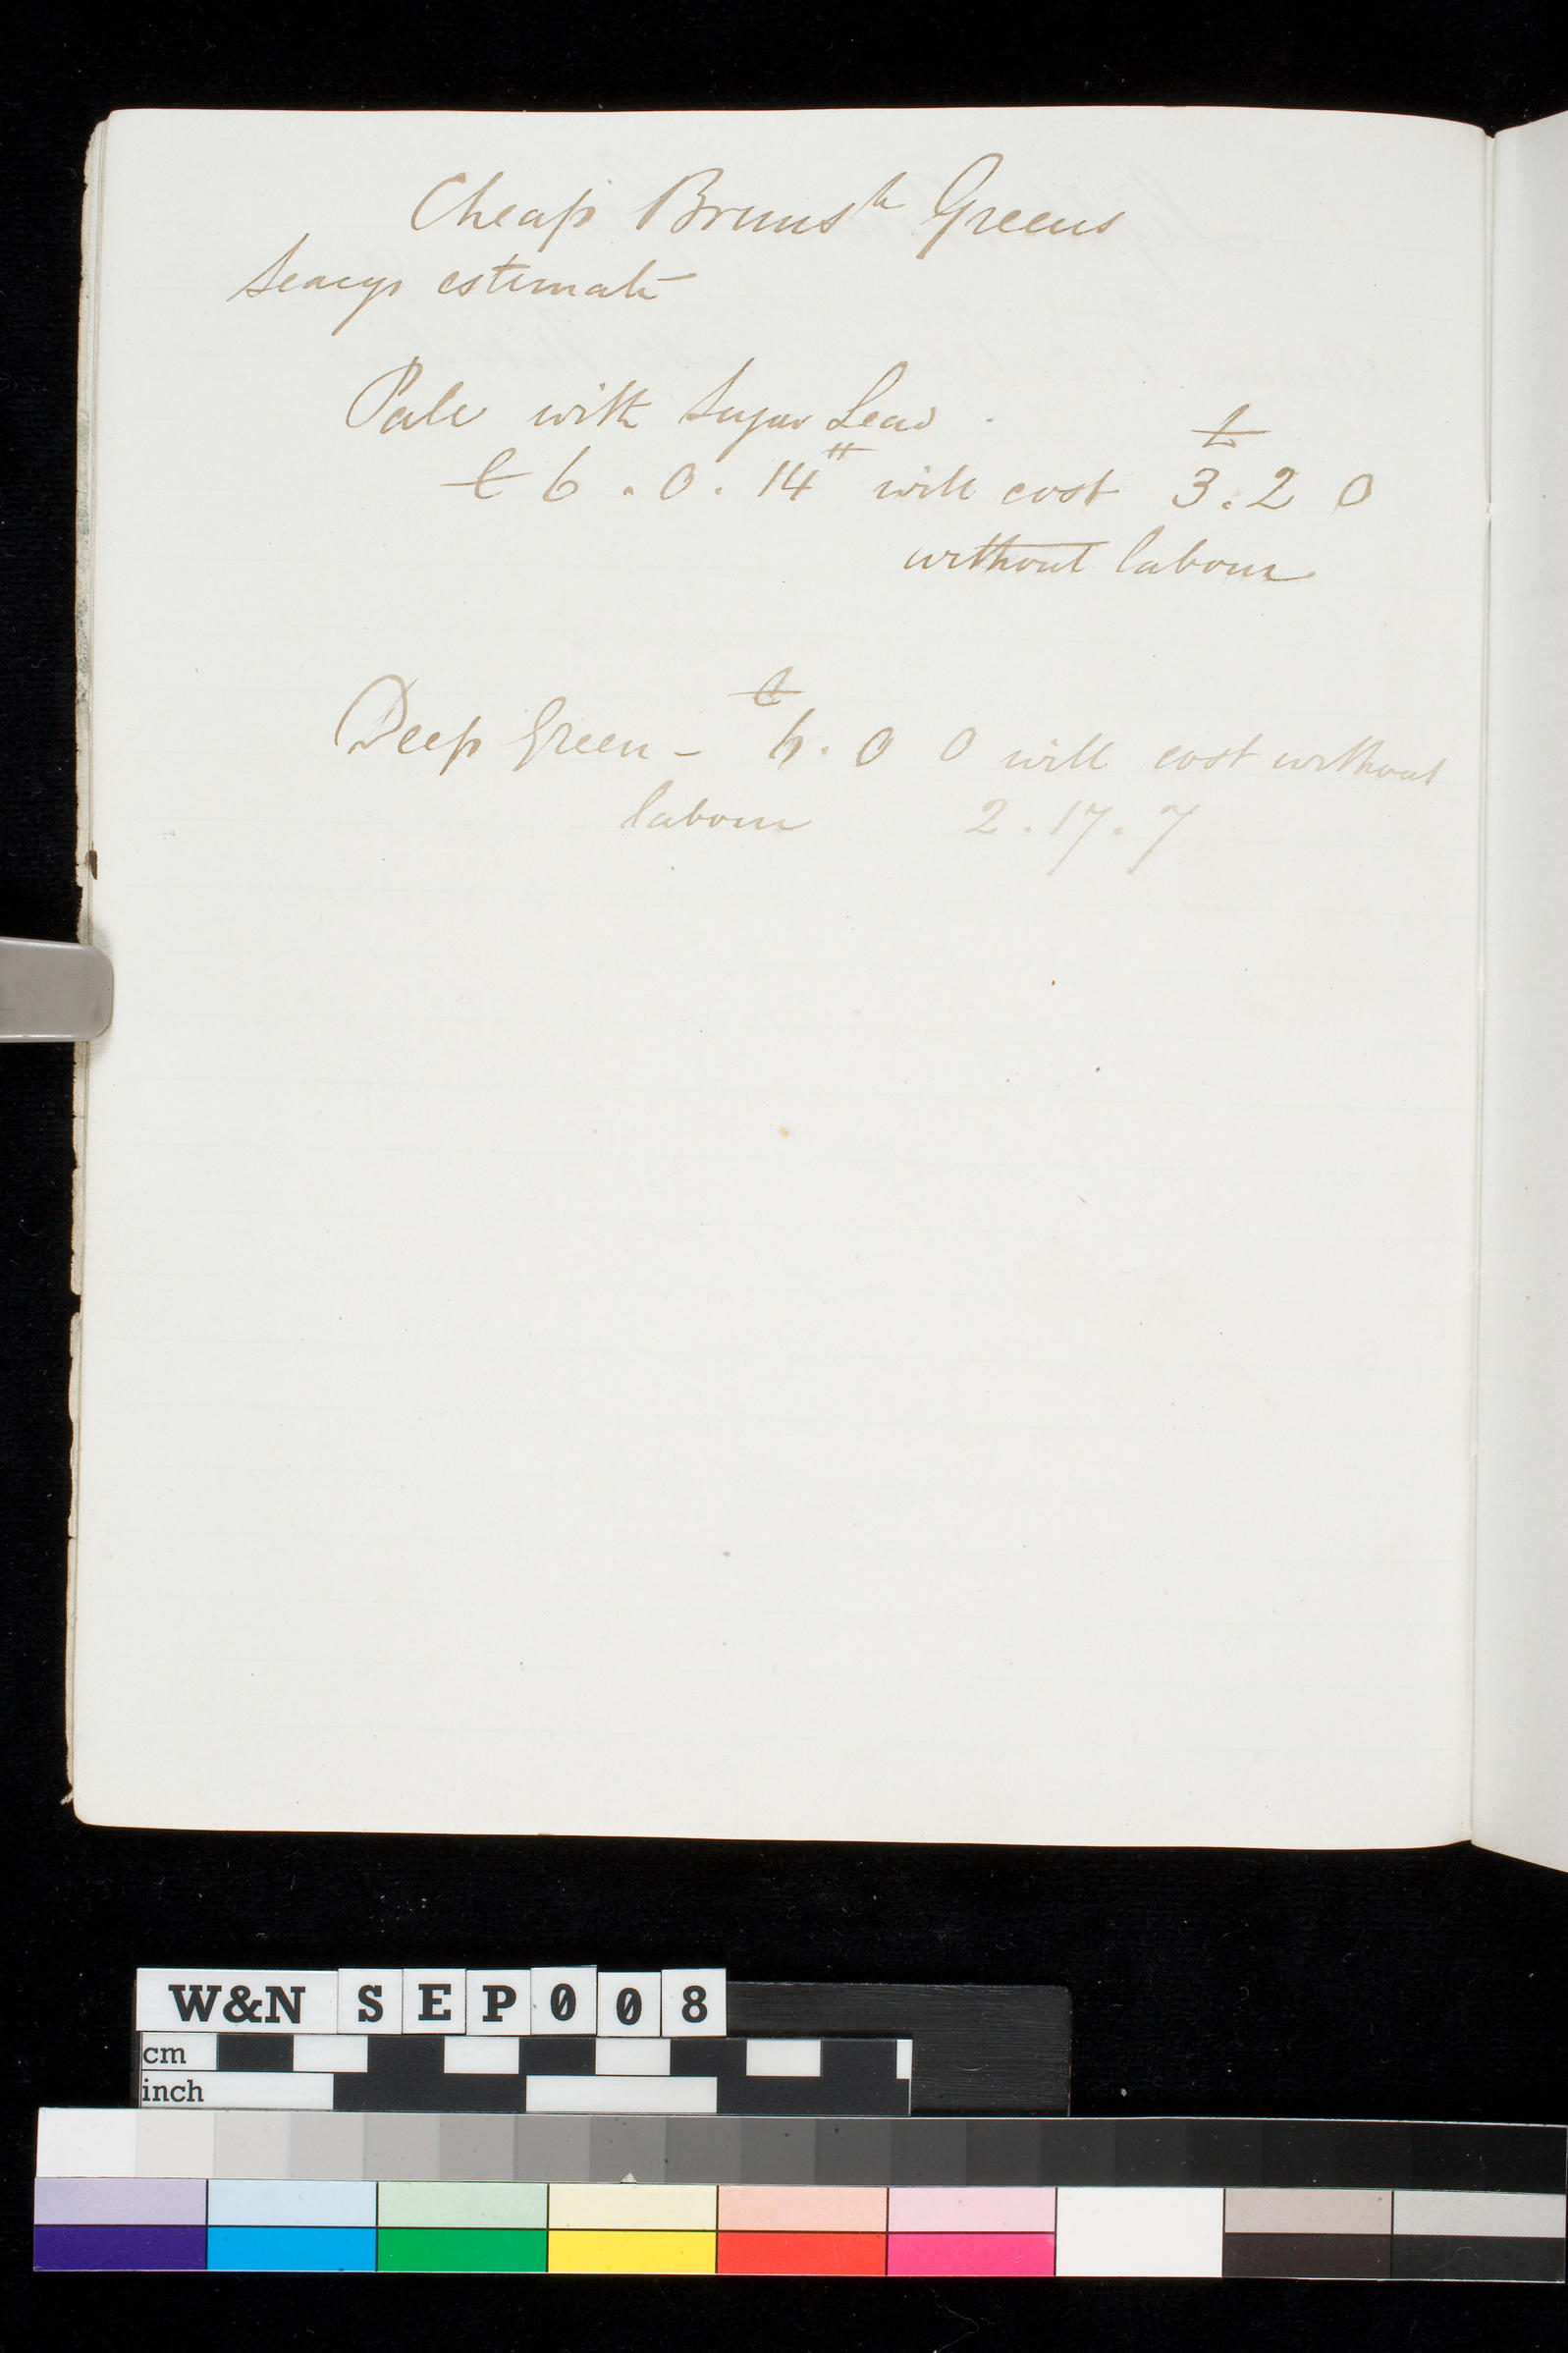 Cheap Bruns^h Greens
Seacys estimate
Pale with Sugar Lead .
£
C 6 . 0 . 14 ^tt will cost 3 . 2 0
without labour
C
Deep Green – 6 . 0 0 will cost without
labour 2 . 17 . 7
W&N SEP008
cm
inch